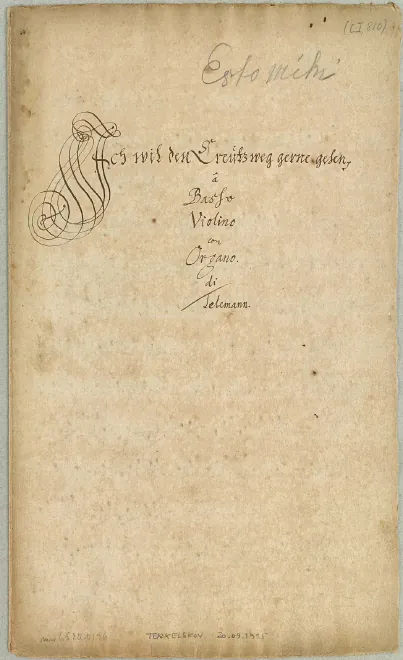 [CI 810]
Estomihi
Ich wil den Creutzweg gerne gehen,
â
Basso
Violino
con
Organo.
di
Telemann.
TERKELSKOV 20.09.1995